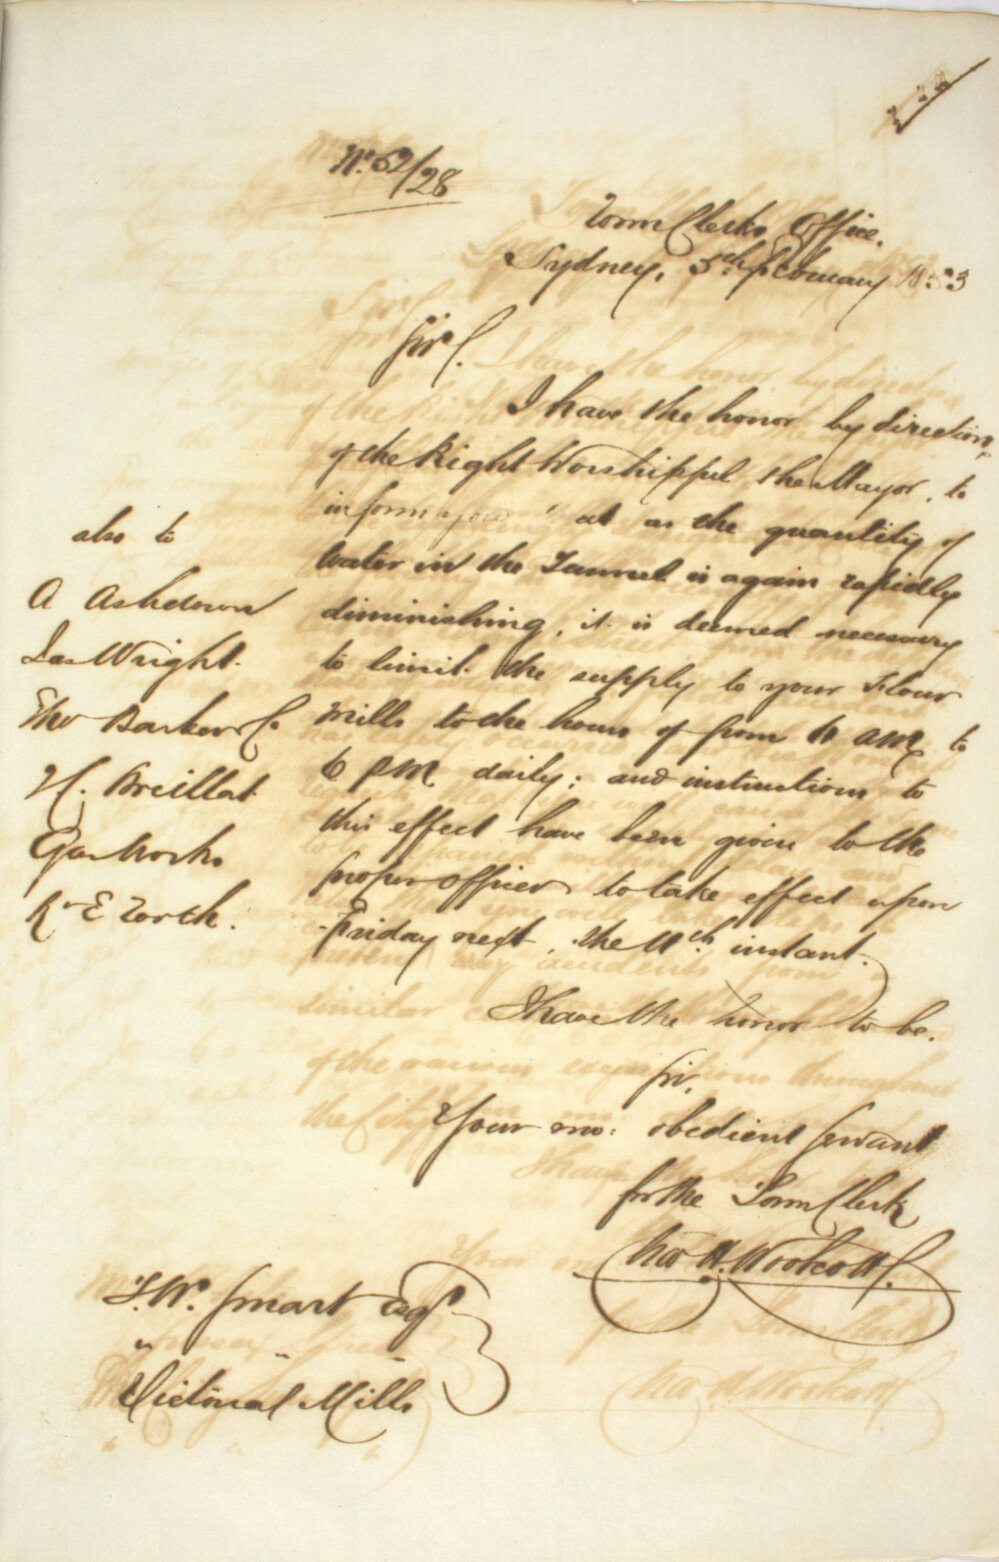 No. 62/28
Town Clerks Office.
Sydney, 5th February 1853
Sir,
I have the honor by direction,
of the Right Worshipful the Mayor, to
inform you at as the quantity of
water in the Tunnel is again rapidly
diminishing, it is deemed necessary
to limit the supply to your Flour
Mills to the hours of from AM to
6 PM daily; and instructions to
this effect have been given to the
proper officer to take effect upon
Friday next, the 11th instant.
I have the honor to be,
Sir,
Your mo: obedient servant
for the Town Clerk
Chas H. Woolcott.
also to
A Ashdown
Jas Wright.
Tho Barker &Co
H. Breillat
Gas Works
R & E Tooth.
T.W. Smart Esqr
" " "
Victoria Mills